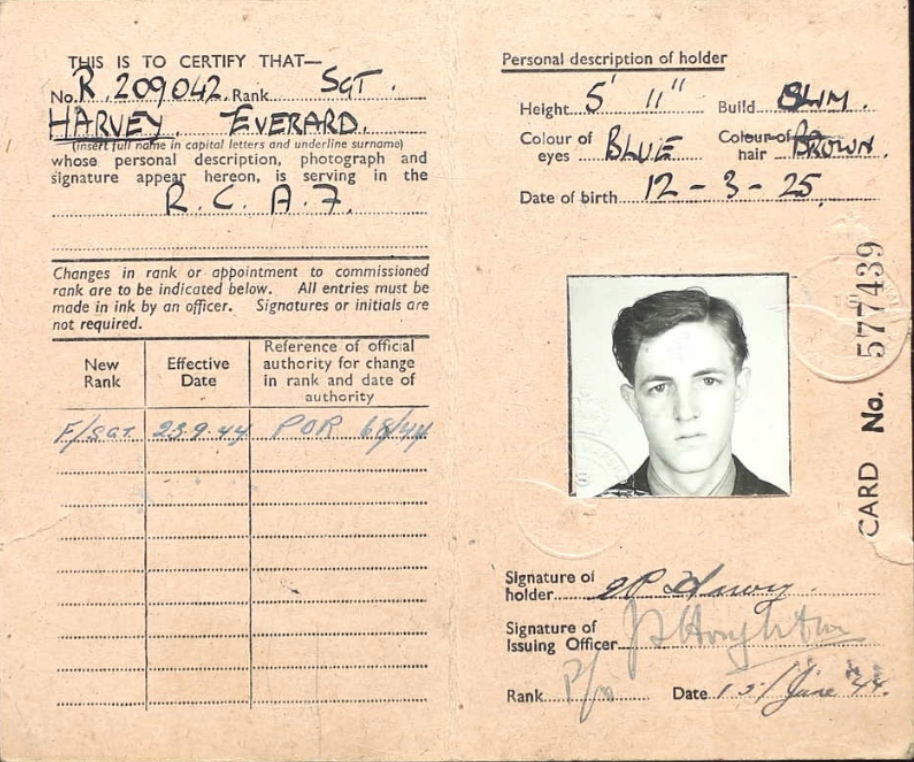 THIS IS TO CERTIFY THAT—
No. R.209042. Rank SGT.
HARVEY. EVERARD.
(insert full name in capital letters and underline surname)
whose personal description, photograph and
signature appear hereon, is serving in the
R.C.A.F.
Changes in rank or appointment to commissioned
rank are to be indicated below. All entries must be
made in ink by an officer. Signatures or initials are
not required.
New Rank Effective Date Reference of official authority for change in rank and date of authority
F/SGT 23.9.44 POR 68/44
Personal description of holder
Height 5' 11" Build SLIM.
Colour of eyes BLUE Colour of hair BROWN.
Date of birth 12-3-25.
CARD No. 577439
Signature of holder Harvey.
Signature of Issuing Officer Houghton
Rank P/O Date 15/June '44.